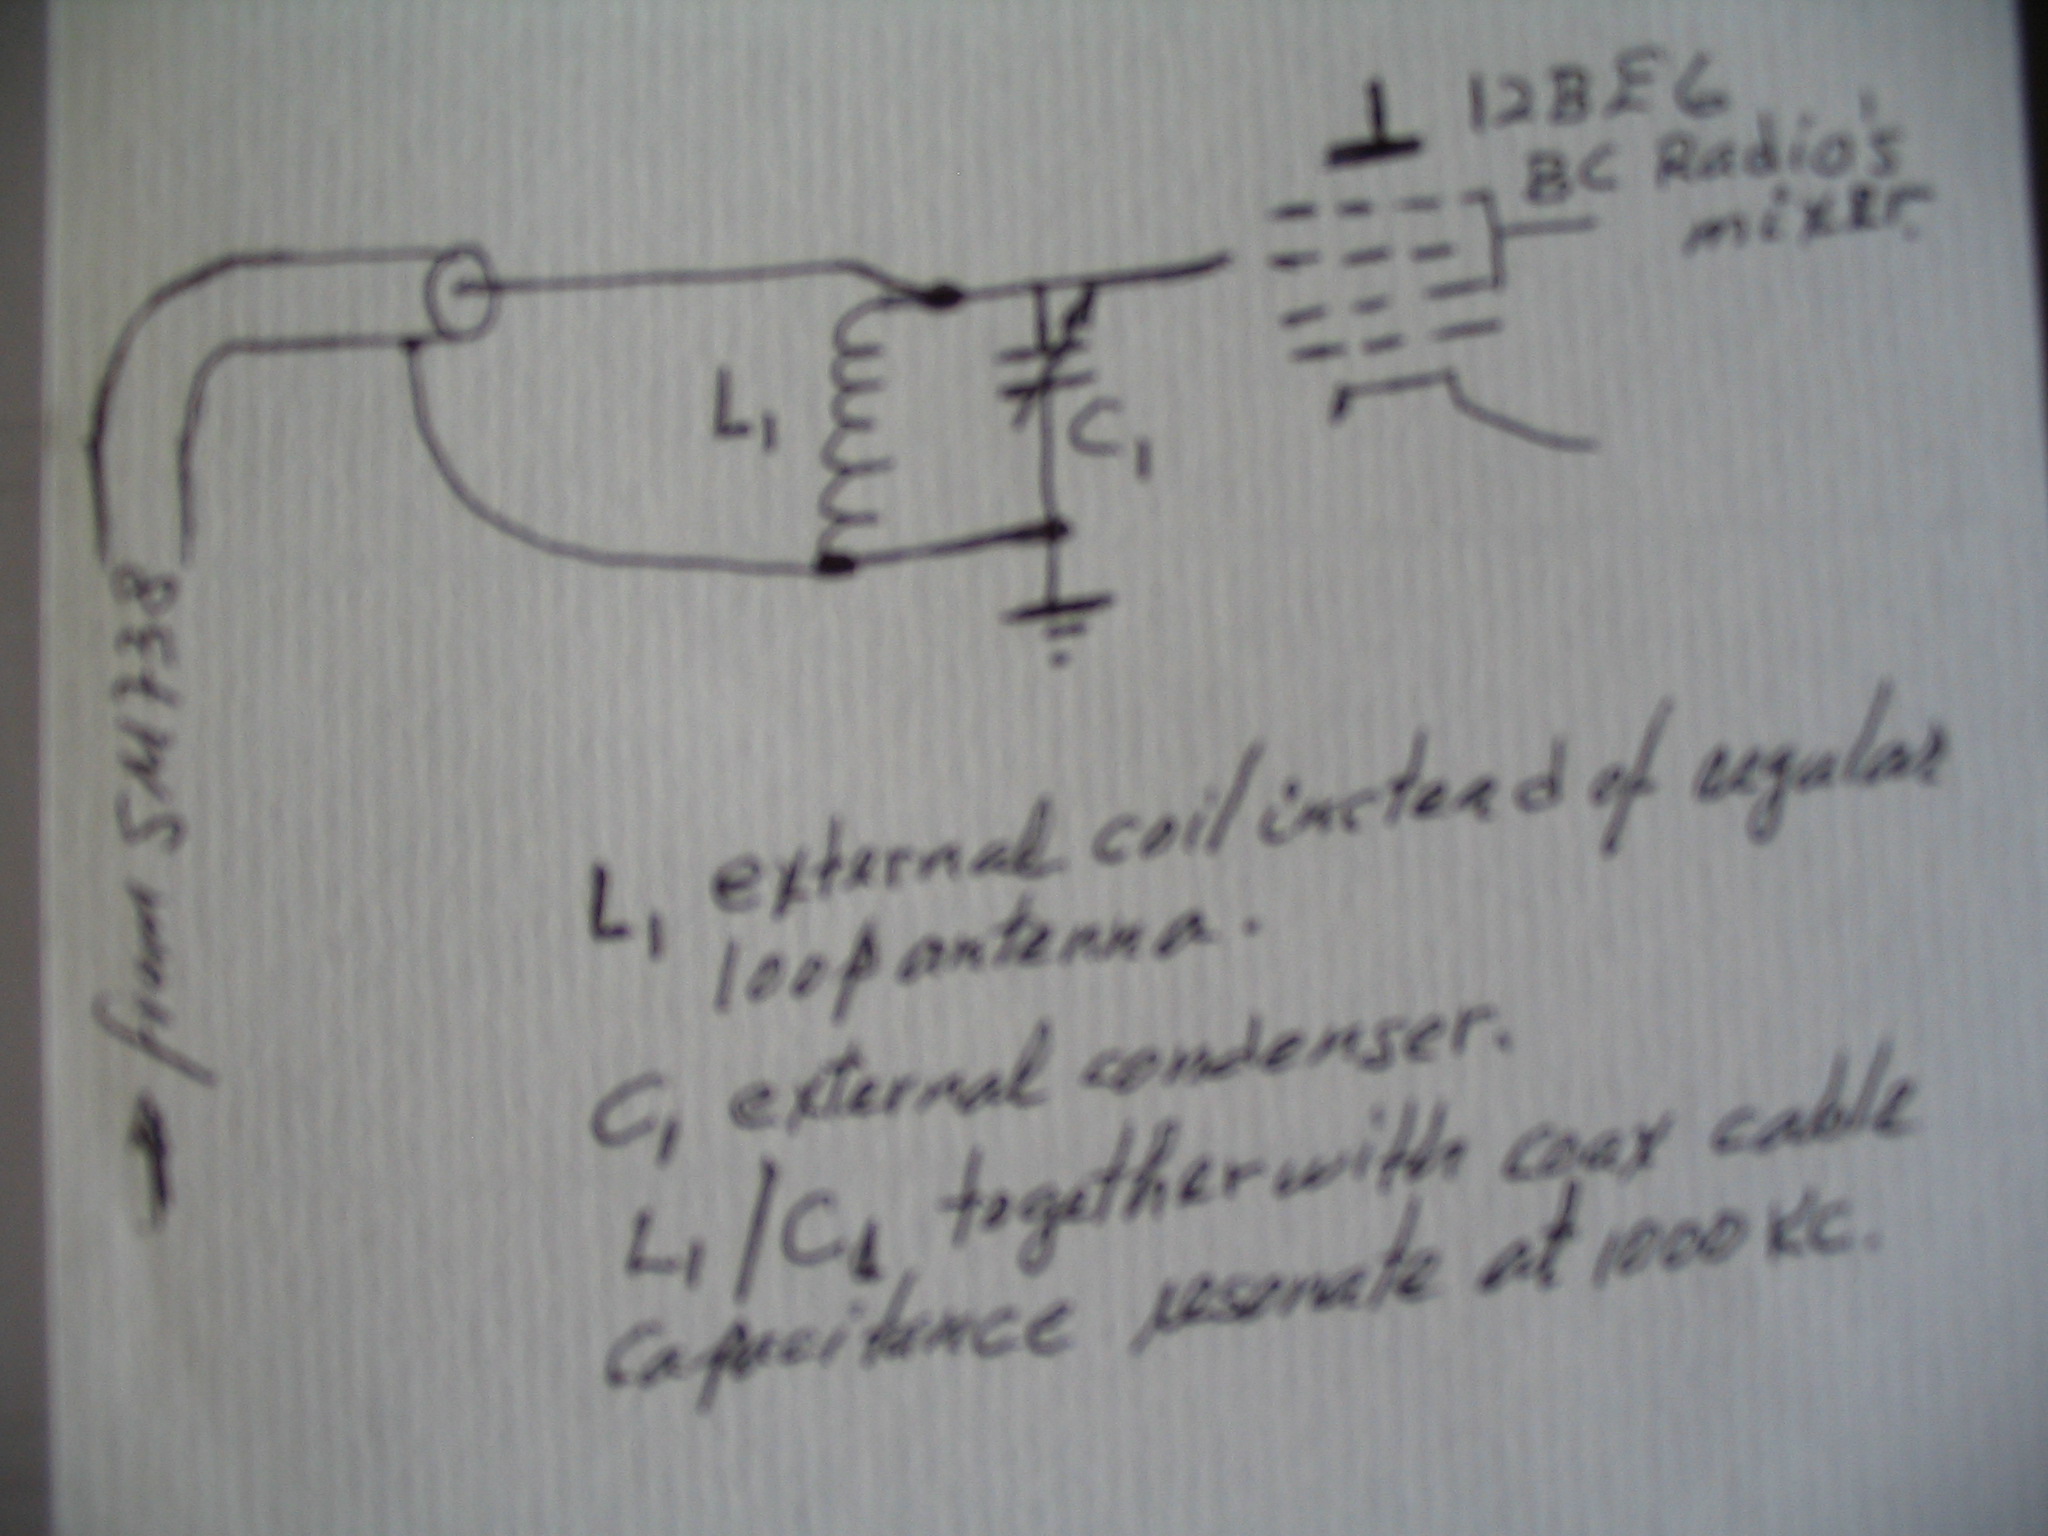 12BE6
BC Radio's
mixer.
L1
C1
from SM738
L1 external coil instead of regular
loop antenna.
C1 external condenser.
L1/C1 together with coax cable
capacitance resonate at 1000 KC.